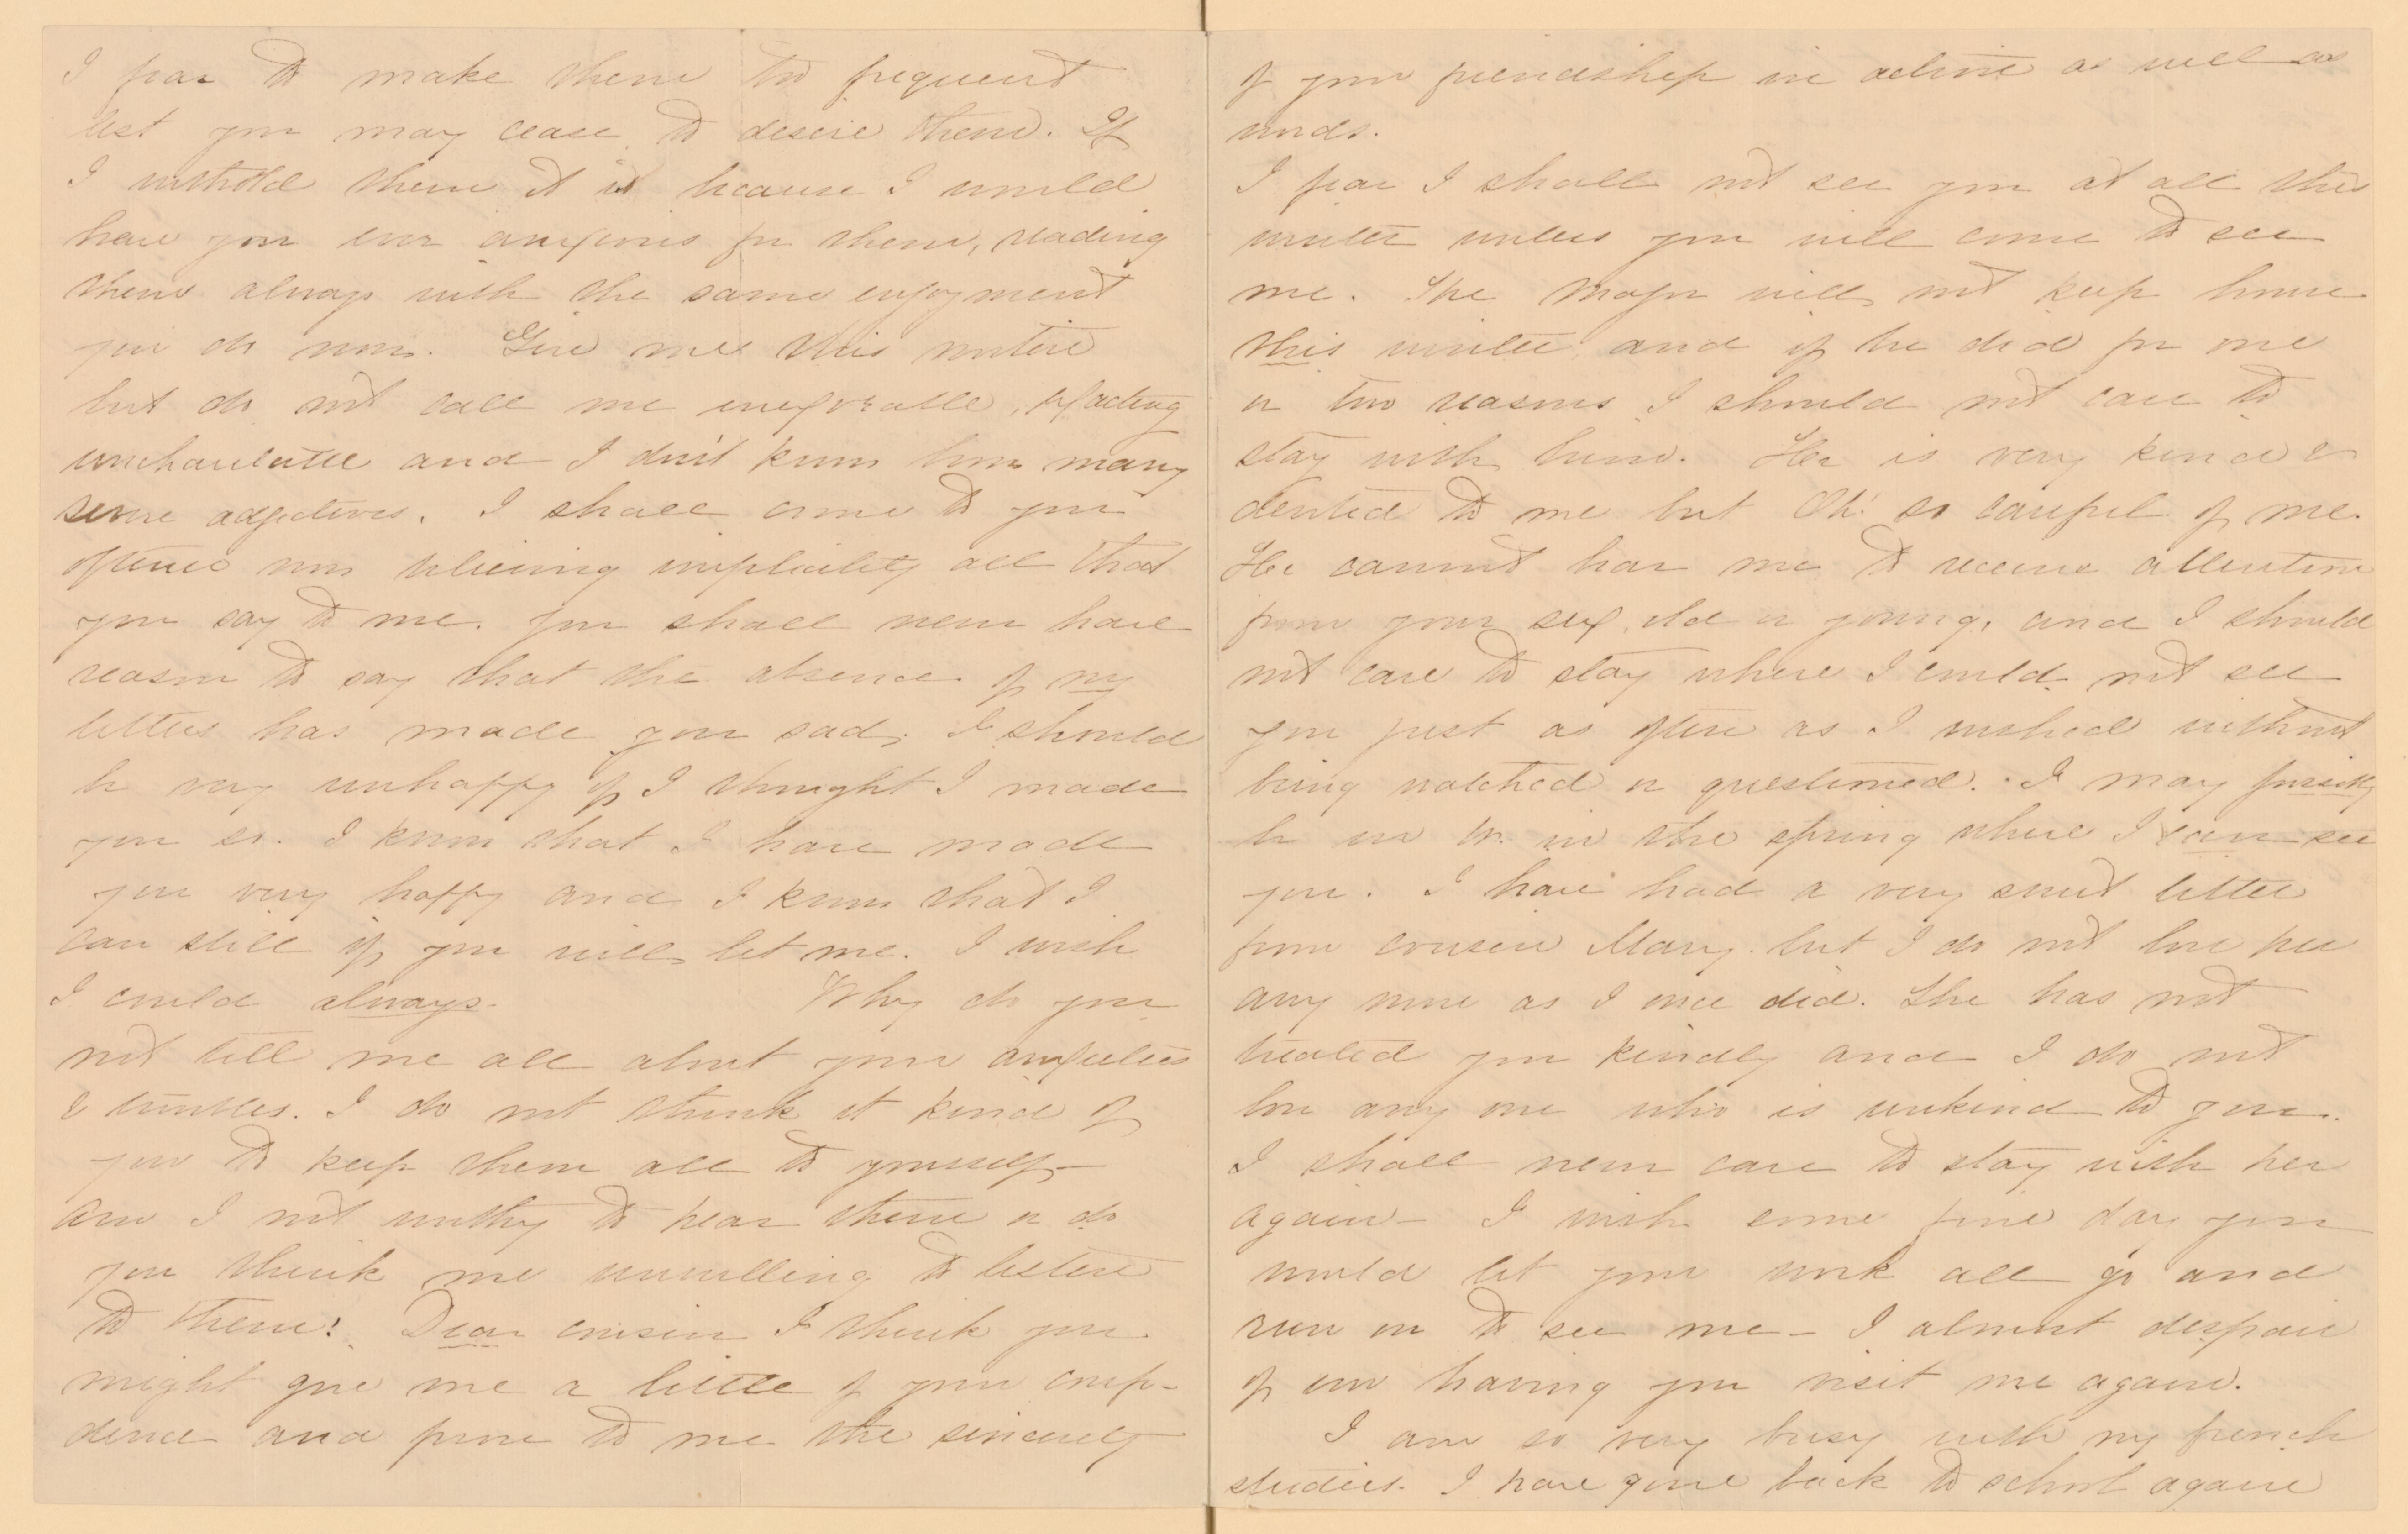 I fear to make them too frequent
lest you may cease to desire them. If
I withold them it is because I would
have you ever anxious for them, reading
them always with the same enjoyment
you do now. Give me this motive
but do not call me inexorable, exacting
uncharitable and I don't know how many
severe adjectives. I shall come to you
oftener now believing implicitly all that
you say to me. You shall never have
reason to say that the absence of my
letters has made you sad; I should
be very unhappy if I thought I made
you so. I know that I have made
you very happy and I know that I
can still if you will let me. I wish
I could always. Why do you
not tell me all about your anxieties
& troubles. I do not think it kind of
you to keep them all to yourself—
am I not worthy to hear them or do
you think me unwilling to listen
to them? Dear cousin I think you
might give me a little of your confi-
dence and prove to me the sincerity
of your friendship in actions as well as
words.
I fear I shall not see you at all this
winter unless you will come to see
me. The Major will not keep house
this winter and if he did for one
or two reasons I should not care to
stay with him. He is very kind &
devoted to me but Oh! so careful of me.
He cannot bear me to receive attention
from your sex, old or young, and I should
not care to stay where I could not see
you just as often as I wished without
being watched or questioned. I may possibly
be in W. in the spring where I can see
you. I have had a very sweet letter
from cousin Mary but I do not love her
any more as I once did. She has not
treated you kindly and I do not
love any one who is unkind to you.
I shall never care to stay with her
again— I wish some fine day you
would let your work all go and
run on to see me— I almost despair
of ever having you visit me again.
I am so very busy with my french
studies. I have gone back to school again